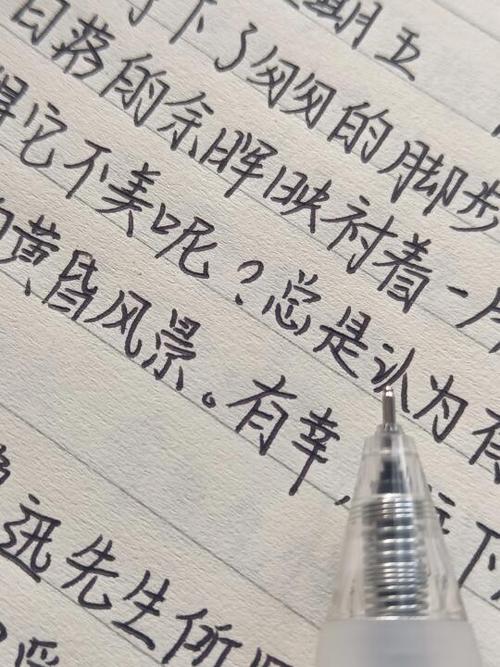 期五
下了匆匆的脚步
日落的余晖映衬着一
它不美呢？总是认为有
的黄昏风景。有幸，下
迅先生所